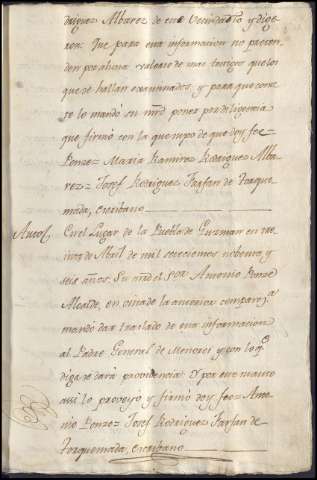 driguez Albarez de esta Vecindad Vto y dige
ron: Que para esta informacion no preten
den por ahora valerse de mas testigos que los
que se hallan examinados, y para que cons
te lo mandó su mrd poner por diligencia
que firmó con la que supo de que doy fee=
Ponze= Maria Ramirez Rodriguez Alba
rez= Josef Rodriguez Farfan de Torque
mada, escribano
Auto En el Lugar de la Puebla de Guzman en
de Abril de mil setecientos nobenta y
seis años: Su md el Sor Antonio Ponze
Alcalde, en vista de la anterior comparesa
mando dar traslado de esta informacion
al Padre General de Menores y con lo q.e
diga se dará providencia: Y por este su auto
asi lo proveyo y firmó doy fee= Anto
nio Ponze= Josef Rodriguez Farfan de
Torquemada, escribano